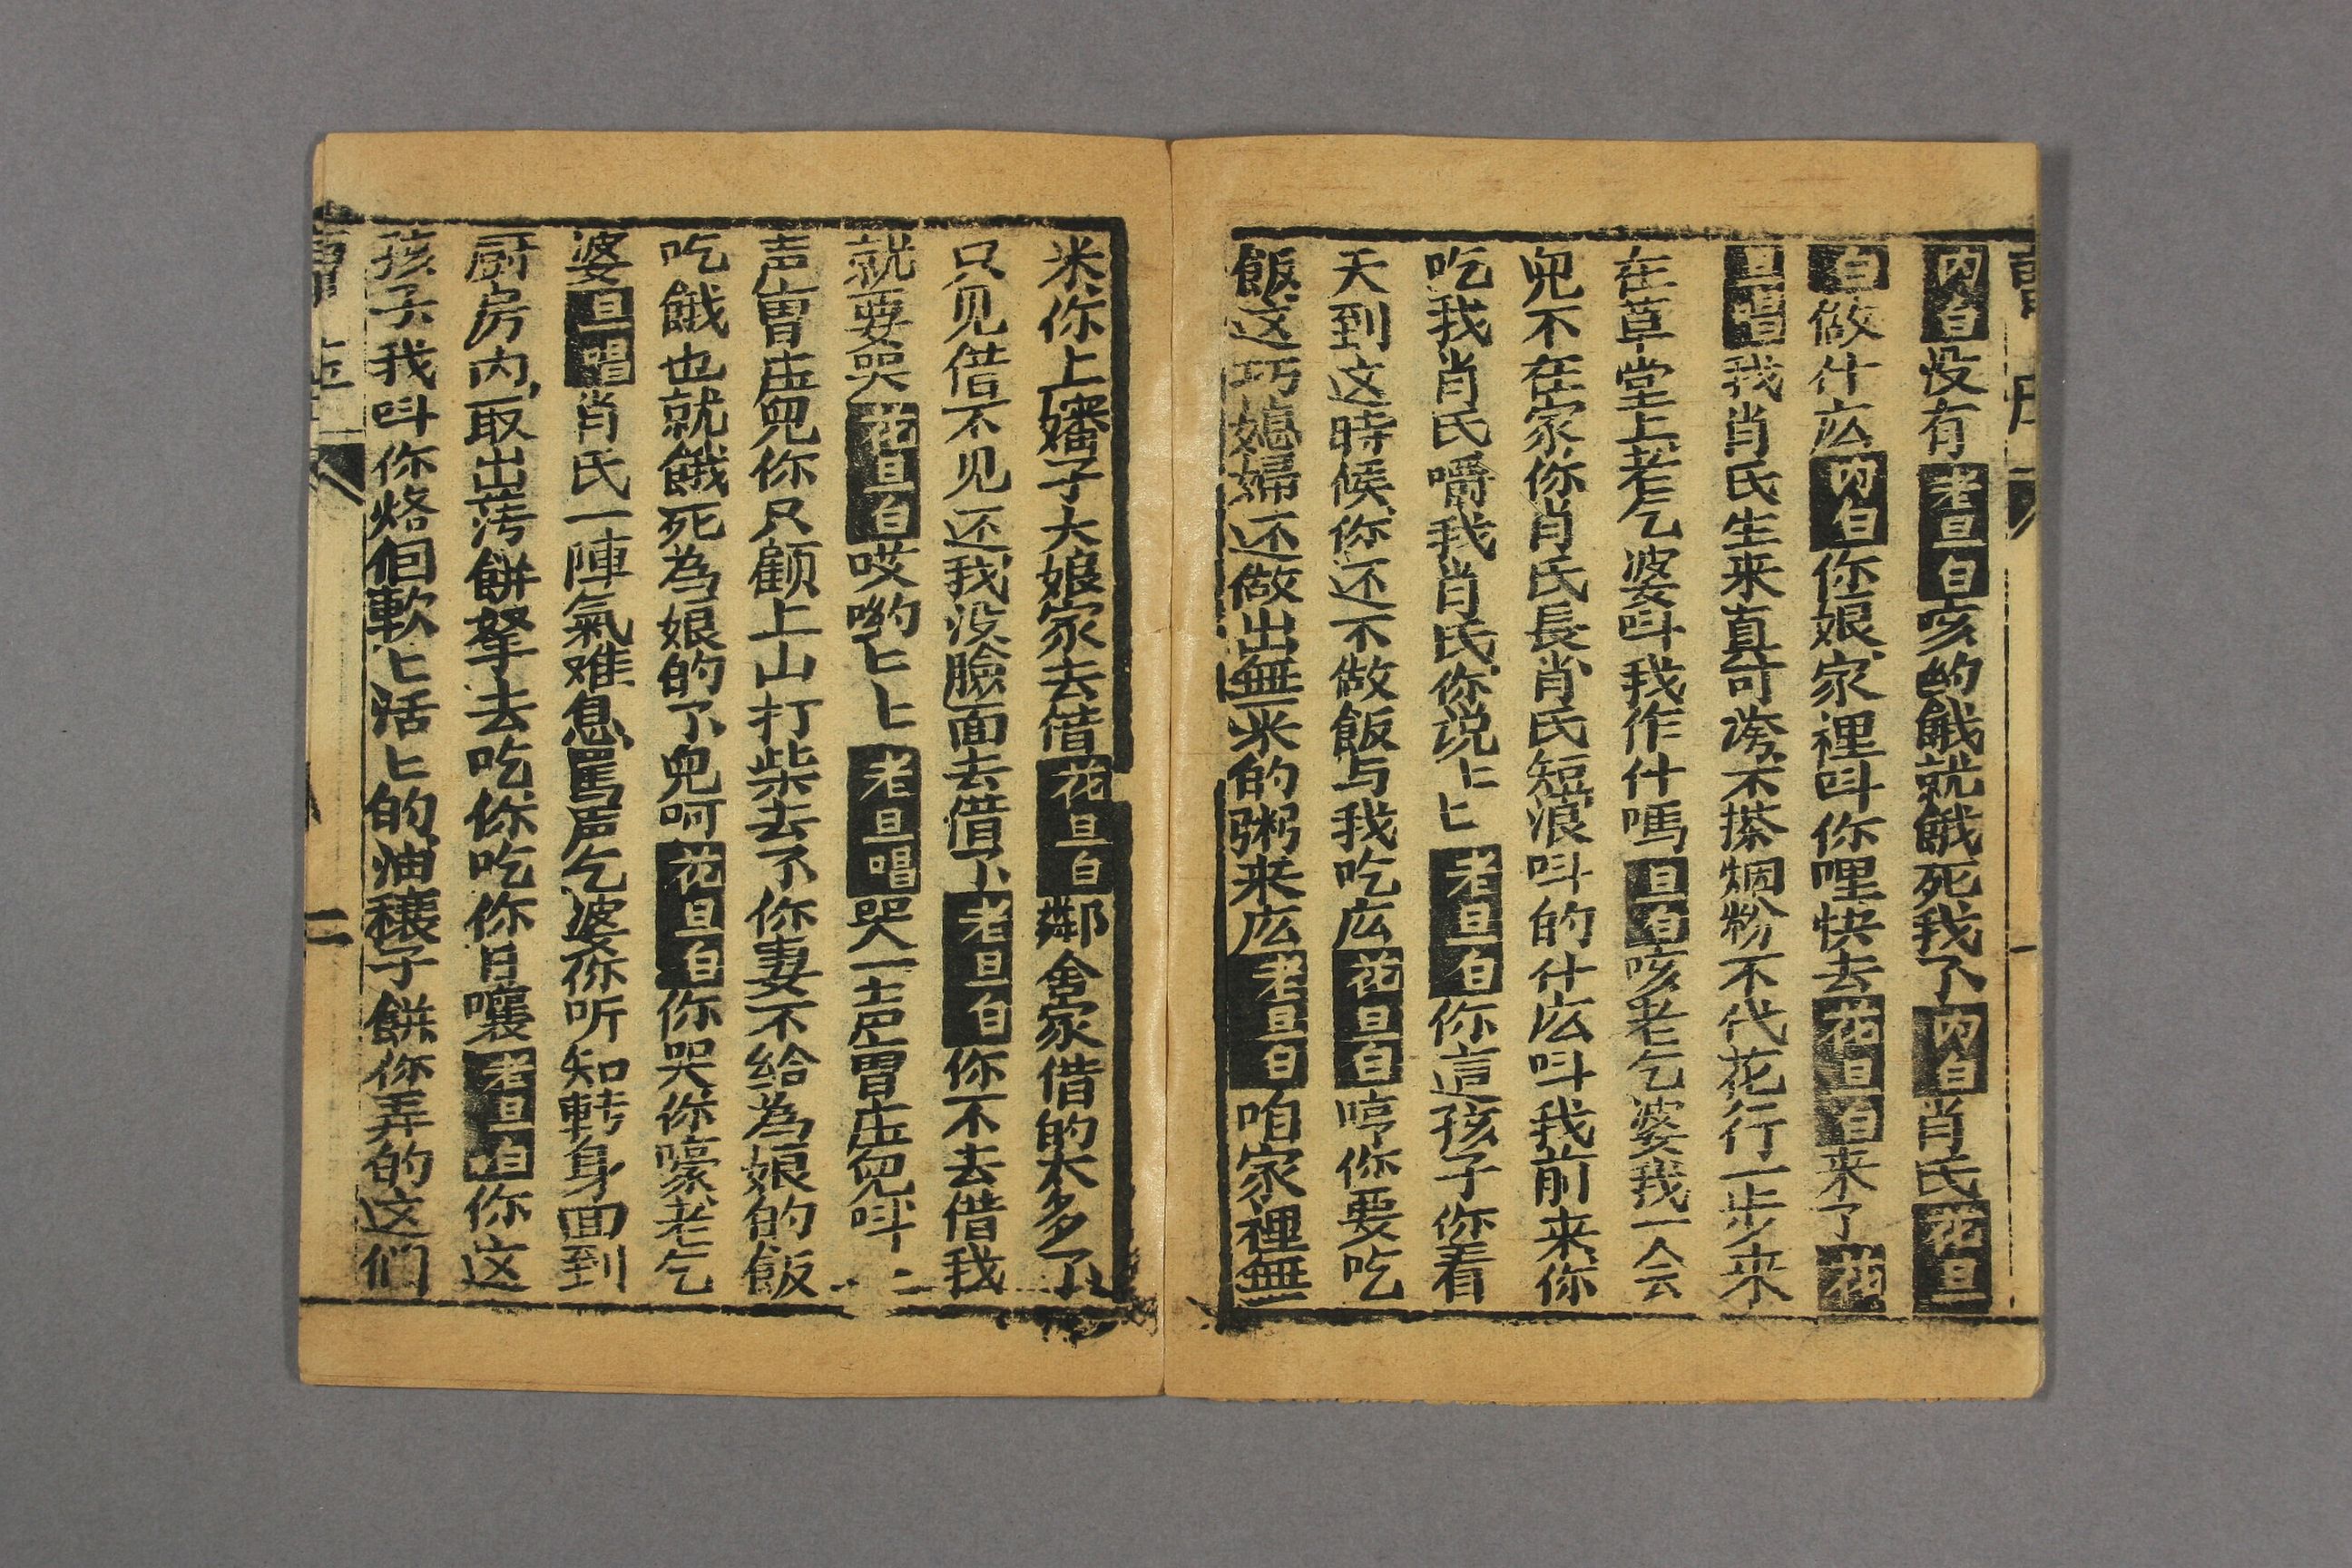 内白没有老旦白咳哟餓就餓死我了内白肖氏花旦
白做什庅内白你娘家裡呌你哩快去花旦白来了花
旦唱我肖氏生来真可誇不搽烟粉不代花行一步来
在草堂上老乞婆呌我作什嗎旦白咳老乞婆我一会
児不在家你肖氏長肖氏短浪呌的什庅呌我前来你
吃我肖氏嚼我肖氏你说匕匕老旦白你這孩子你看
天到这時候你还不做飯与我吃庅花旦白哼你要吃
飯这巧媳婦还做出無米的粥来庅老旦白咱家裡無
米你上嬸子大娘家去借花旦白鄰舍家借的太多了
只见借不见还我没臉面去借了老旦白你不去借我
就要哭花旦白哎喲匕匕老旦唱哭一声曹庄児呌一
声曹庄児你只顧上山打柴去了你妻不給為娘的飯
吃餓也就餓死為娘的了児呵花旦白你哭你嚎老乞
婆旦唱肖氏一陣氣难息罵声乞婆你听知轉身面到
厨房内取出蕩餅拏去吃你吃你日嚷老旦白你这
孩子我呌你烙個軟匕活匕的油穰子餅你弄的这们
二